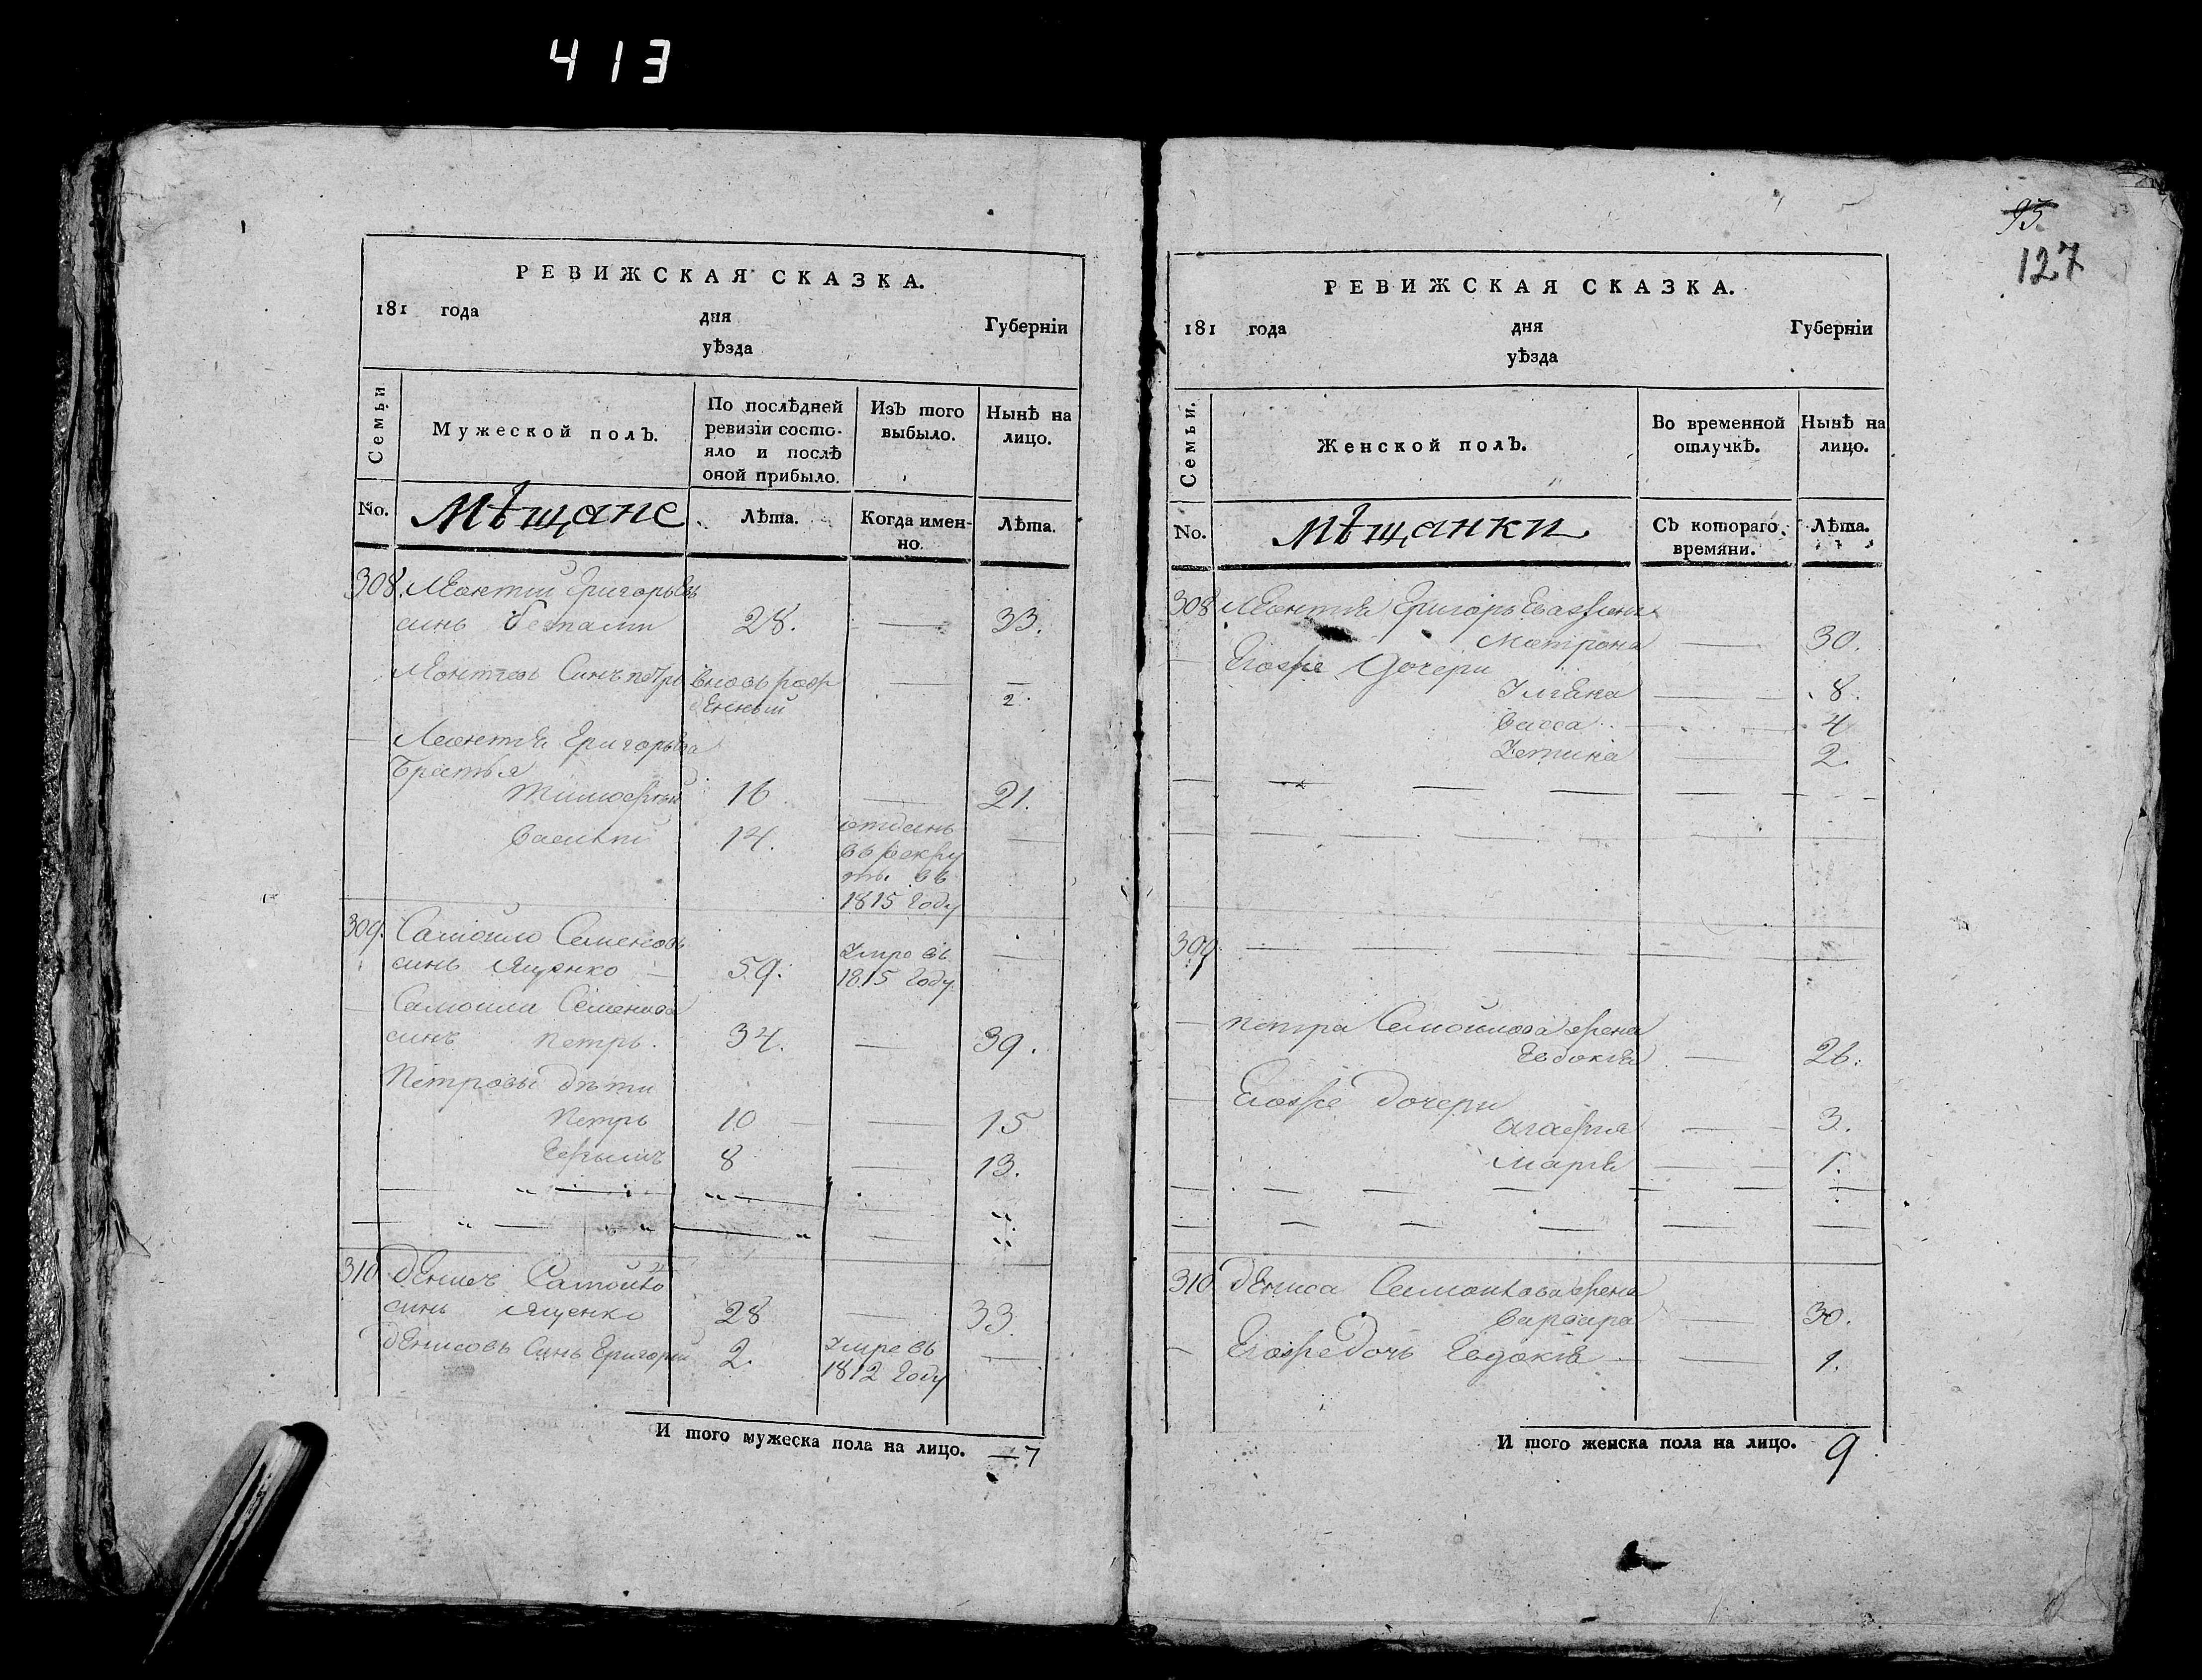 413
РЕВИЖСКАЯ СКАЗКА.
181 года дня Губерніи
уѣзда
Семьи
Мужеской полъ.
По послѣдней ревизіи состояло и послѣ оной прибыло.
Изъ того выбыло.
Нынѣ на лицо.
No.
Мѣщане
Лѣта.
Когда именно.
Лѣта.
308. Леонтий Григорьевъ
синъ 28. — 33.
Леонтиевъ Синъ петръ вновь рож
денный — 2.
— Леонтия Григорьева
Братья
Тимофей 16 — 21.
Василий 14. отданъ —
въ рекру
ты въ
1815 году
309. Самойло Семеновъ
синъ Ященко — 59. Умре въ 1815 году —
— Самоила Семенова
синъ Петръ. 34. — 39.
Петровы дѣти
Петръ 10 — 15
Ефимъ 8 — 13.
310 Денисъ Самойло
синъ Ященко 28 — 33.
Денисовъ Синъ Григорий 2. Умре въ 1812 году —
И того мужеска пола на лицо. — 7
95.
127
РЕВИЖСКАЯ СКАЗКА.
181 года дня Губерніи
уѣзда
Семьи.
Женской полъ.
Во временной отлучкѣ.
Нынѣ на лицо.
No.
Мѣщанки
Съ котораго времяни.
Лѣта.
308 Леонтия Григорьева жена
Матрона — 30.
— Егоже Дочери
Улияна — 8.
Васса — 4
2.
309
— петра Самойлова жена
Евдокия — 26.
— Егоже дочери
Агафия — 3.
Мария — 1.
310 Дениса Самойлова жена
Варвара — 30.
— Егоже Дочь Евдокия — 1.
И того женска пола на лицо. 9